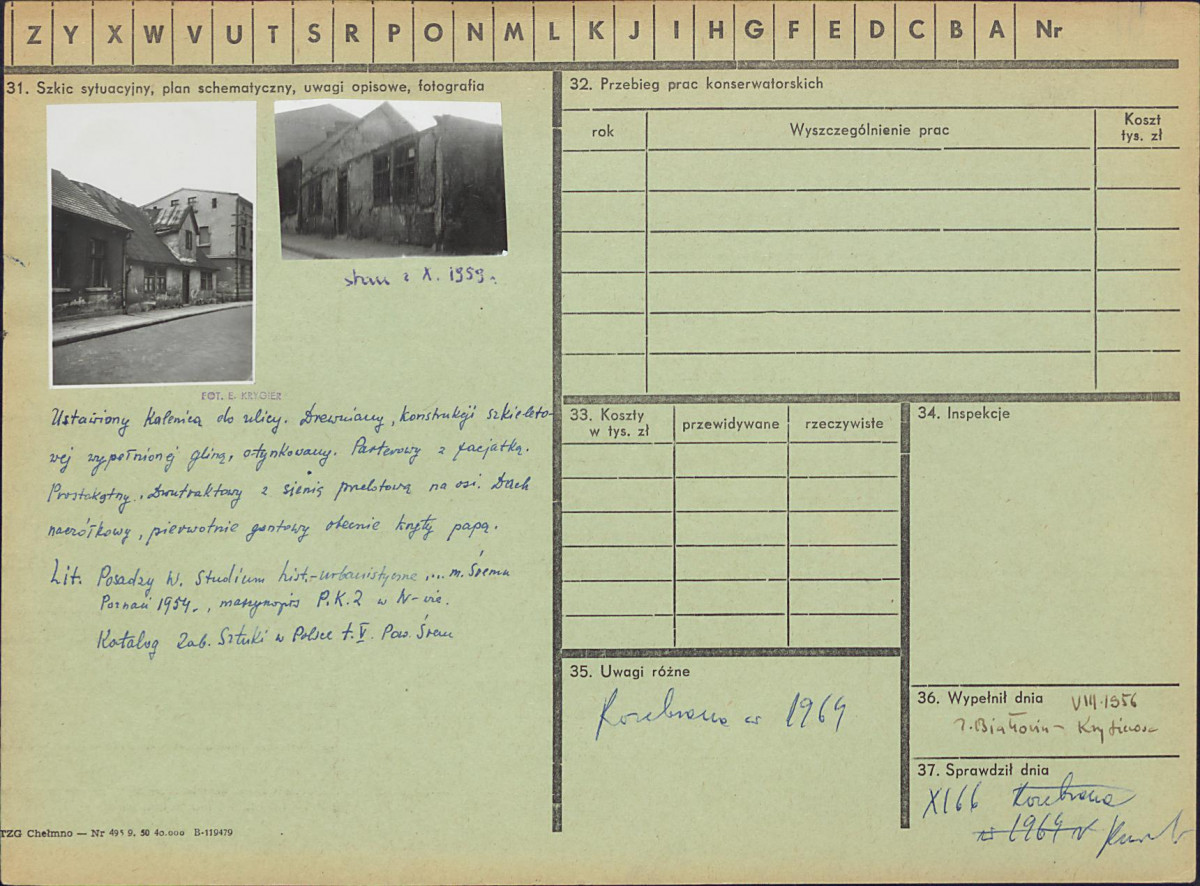 Z Y X W V U T S R P O N M L K J I H G F E D C B A Nr
31. Szkic sytuacyjny, plan schematyczny, uwagi opisowe, fotografia
stan z X. 1959.
FOT. E. KRYGIER
Ustawiony Kalenicą do ulicy. Drewniany, konstrukcji szkieleto-
wej wypełnionej gliną, otynkowany. Parterowy z facjatką.
Prostokątny. Dwutraktowy z sienią przelotową na osi. Dach
naczółkowy, pierwotnie gontowy obecnie kryty papą.
Lit. Posadzy W. Studium hist.-urbanistyczne ... m. Śremu
Poznań 1954., maszynopis P.K.Z w W-wie.
Katalog Zab. Sztuki w Polsce t. V. Pow. Śrem
TZG Chełmno — Nr 495 9. 50 40.000 B-119479
32. Przebieg prac konserwatorskich
rok
Wyszczególnienie prac
Koszt
tys. zł
33. Koszty
w tys. zł
przewidywane
rzeczywiste
34. Inspekcje
35. Uwagi różne
Rozebrana w 1964
36. Wypełnił dnia VIII.1956
37. Sprawdził dnia
XI 66 Rozebrana
w 1964 r